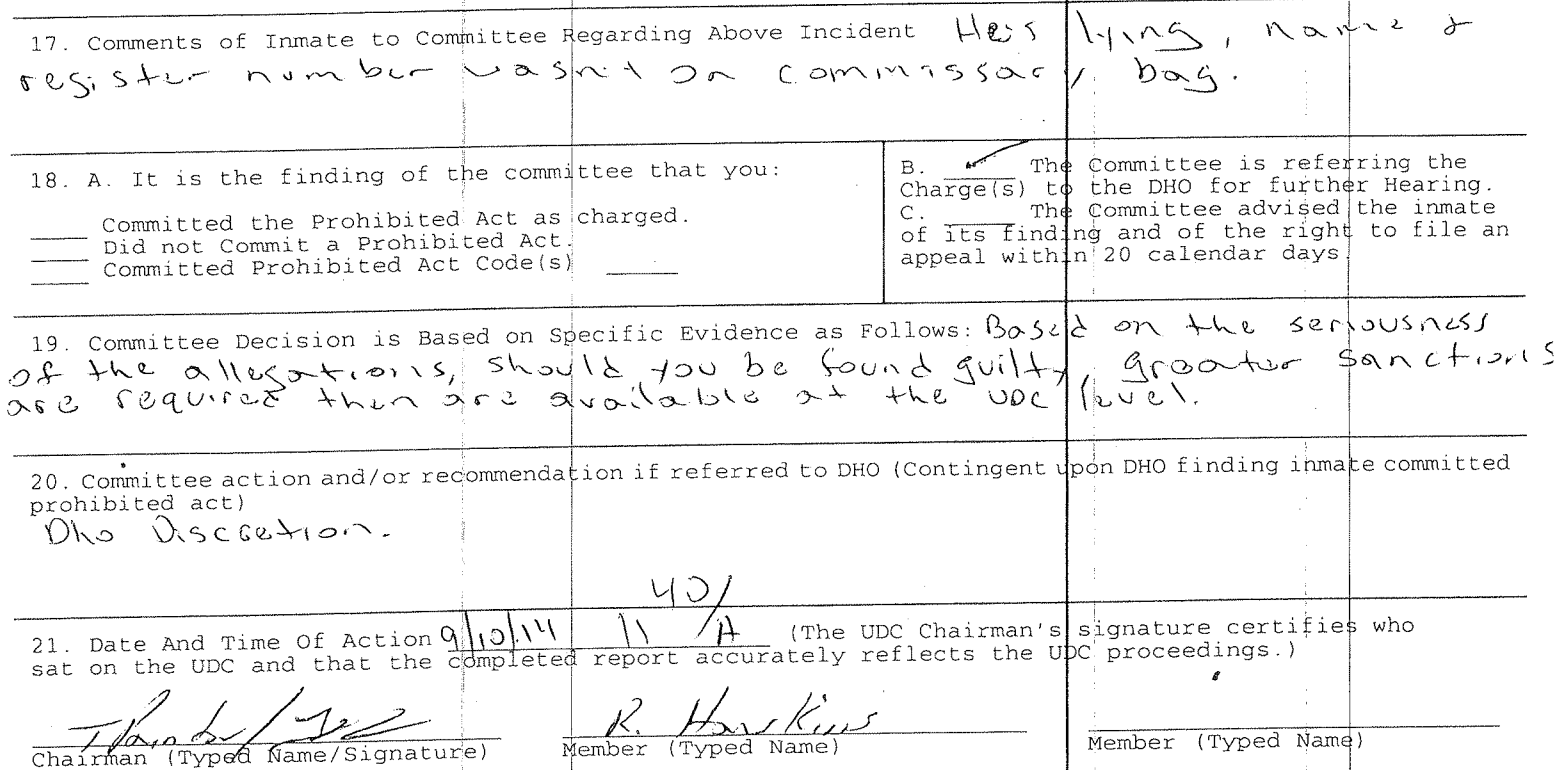 17. Comments of Inmate to Committee Regarding Above Incident He is lying, name &
register number wasn't on commissary bag.
18. A. It is the finding of the committee that you:
____ Committed the Prohibited Act as charged.
____ Did not Commit a Prohibited Act.
____ Committed Prohibited Act Code(s) _____
B. ✓ The Committee is referring the
Charge(s) to the DHO for further Hearing.
C. _____ The Committee advised the inmate
of its finding and of the right to file an
appeal within 20 calendar days.
19. Committee Decision is Based on Specific Evidence as Follows: Based on the seriousness
of the allegations, should you be found guilty, greater sanctions
are required then are available at the UDC level.
20. Committee action and/or recommendation if referred to DHO (Contingent upon DHO finding inmate committed
prohibited act)
Dho Discretion.
21. Date And Time Of Action 9/10/14 11 40/A (The UDC Chairman's signature certifies who
sat on the UDC and that the completed report accurately reflects the UDC proceedings.)
R. Hawkins
Chairman (Typed Name/Signature) Member (Typed Name) Member (Typed Name)